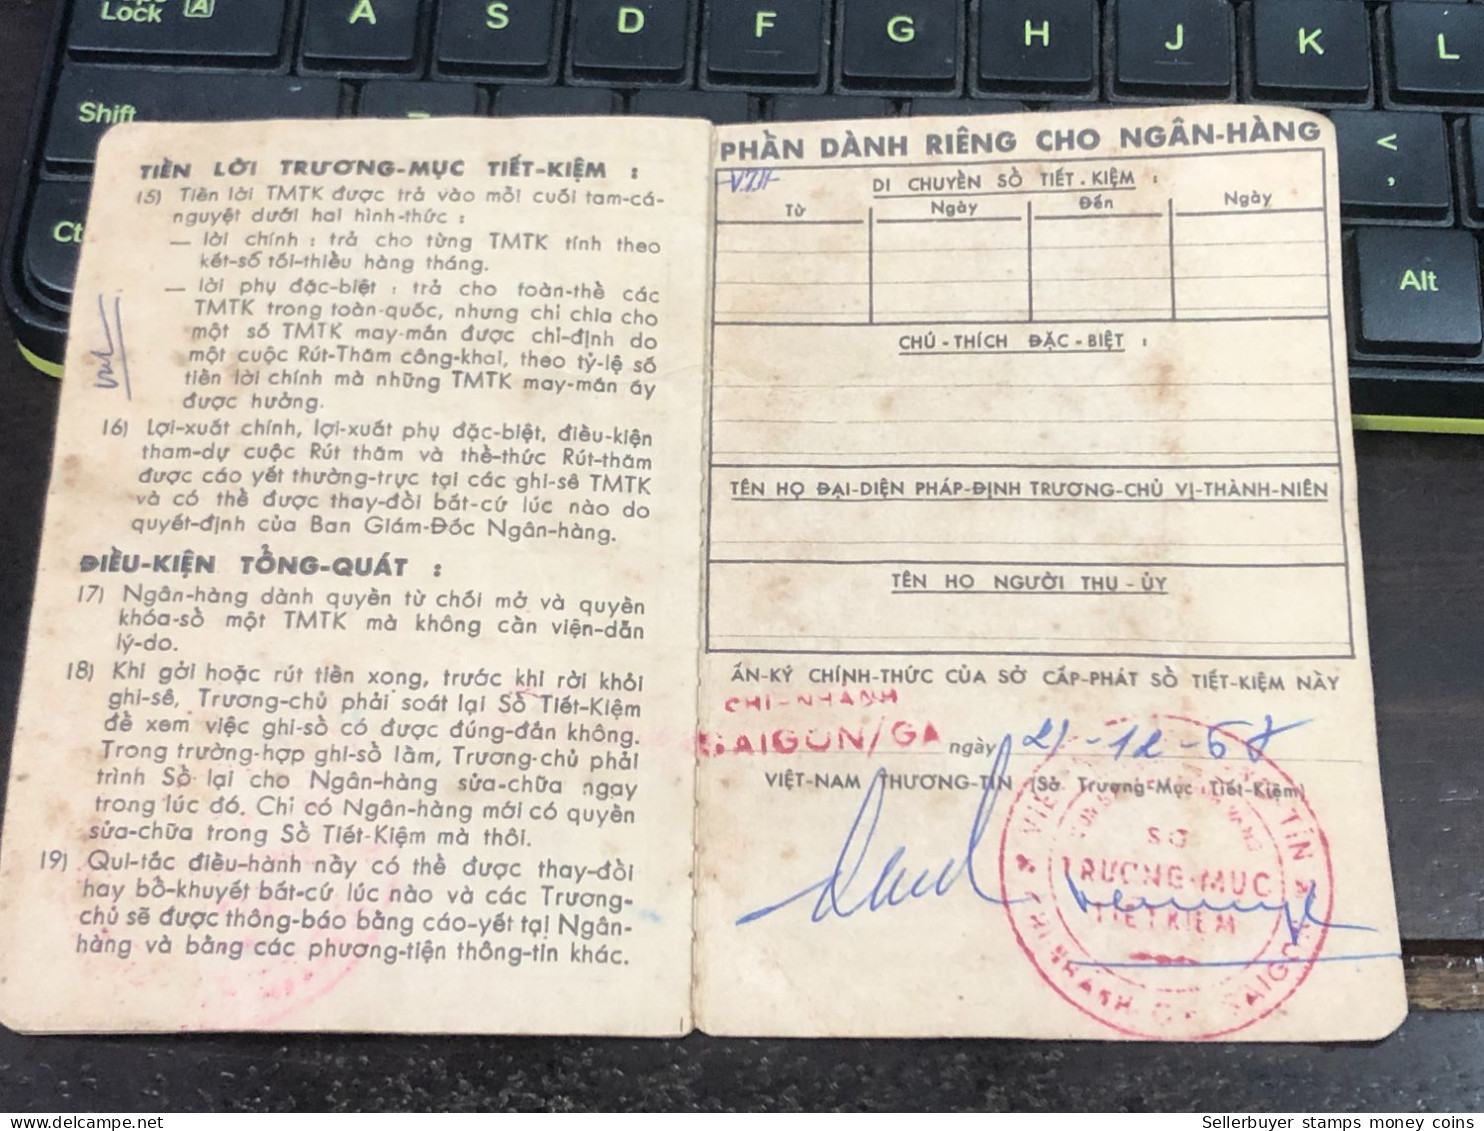 Lock A
A S D F G H J K L
Shift
<
,
Alt
TIỀN LỜI TRƯƠNG-MỤC TIẾT-KIỆM :
15) Tiền lời TMTK được trả vào mỗi cuối tam-cá-
nguyệt dưới hai hình-thức :
— lời chính : trả cho từng TMTK tính theo
kết-số tối-thiều hàng tháng.
— lời phụ đặc-biệt : trả cho toàn-thề các
TMTK trong toàn-quốc, nhưng chỉ chia cho
một số TMTK may-mắn được chỉ-định do
một cuộc Rút-Thăm công-khai, theo tỷ-lệ số
tiền lời chính mà những TMTK may-mắn ấy
được hưởng.
16) Lợi-xuất chính, lợi-xuất phụ đặc-biệt, điều-kiện
tham-dự cuộc Rút thăm và thề-thức Rút-thăm
được cáo yết thường-trực tại các ghi-sê TMTK
và có thề được thay-đồi bất-cứ lúc nào do
quyết-định của Ban Giám-Đốc Ngân-hàng.
ĐIỀU-KIỆN TỔNG-QUÁT :
17) Ngân-hàng dành quyền từ chối mở và quyền
khóa-sồ một TMTK mà không cần viện-dẫn
lý-do.
18) Khi gởi hoặc rút tiền xong, trước khi rời khỏi
ghi-sê, Trương-chủ phải soát lại Sồ Tiết-Kiệm
đề xem việc ghi-sồ có được đúng-đắn không.
Trong trường-hợp ghi-sồ lầm, Trương-chủ phải
trình Sồ lại cho Ngân-hàng sửa-chữa ngay
trong lúc đó. Chỉ có Ngân-hàng mới có quyền
sửa-chữa trong Sồ Tiết-Kiệm mà thôi.
19) Qui-tắc điều-hành này có thề được thay-đồi
hay bồ-khuyết bất-cứ lúc nào và các Trương-
chủ sẽ được thông-báo bằng cáo-yết tại Ngân-
hàng và bằng các phương-tiện thông-tin khác.
PHẦN DÀNH RIÊNG CHO NGÂN-HÀNG
DI CHUYỀN SỒ TIẾT.KIỆM :
Từ Ngày Đến Ngày
CHÚ-THÍCH ĐẶC-BIỆT :
TÊN HỌ ĐẠI-DIỆN PHÁP-ĐỊNH TRƯƠNG-CHỦ VỊ-THÀNH-NIÊN
TÊN HỌ NGƯỜI THỤ-ỦY
ẤN-KÝ CHÍNH-THỨC CỦA SỞ CẤP-PHÁT SỒ TIẾT-KIỆM NÀY
CHI-NHANH
SAIGON/GA ngày 21-12-68
VIỆT-NAM THƯƠNG-TÍN (Sở Trương-Mục Tiết-Kiệm)
SỞ
TRƯƠNG-MỤC
TIẾT KIỆM
Sellerbuyer stamps money coins